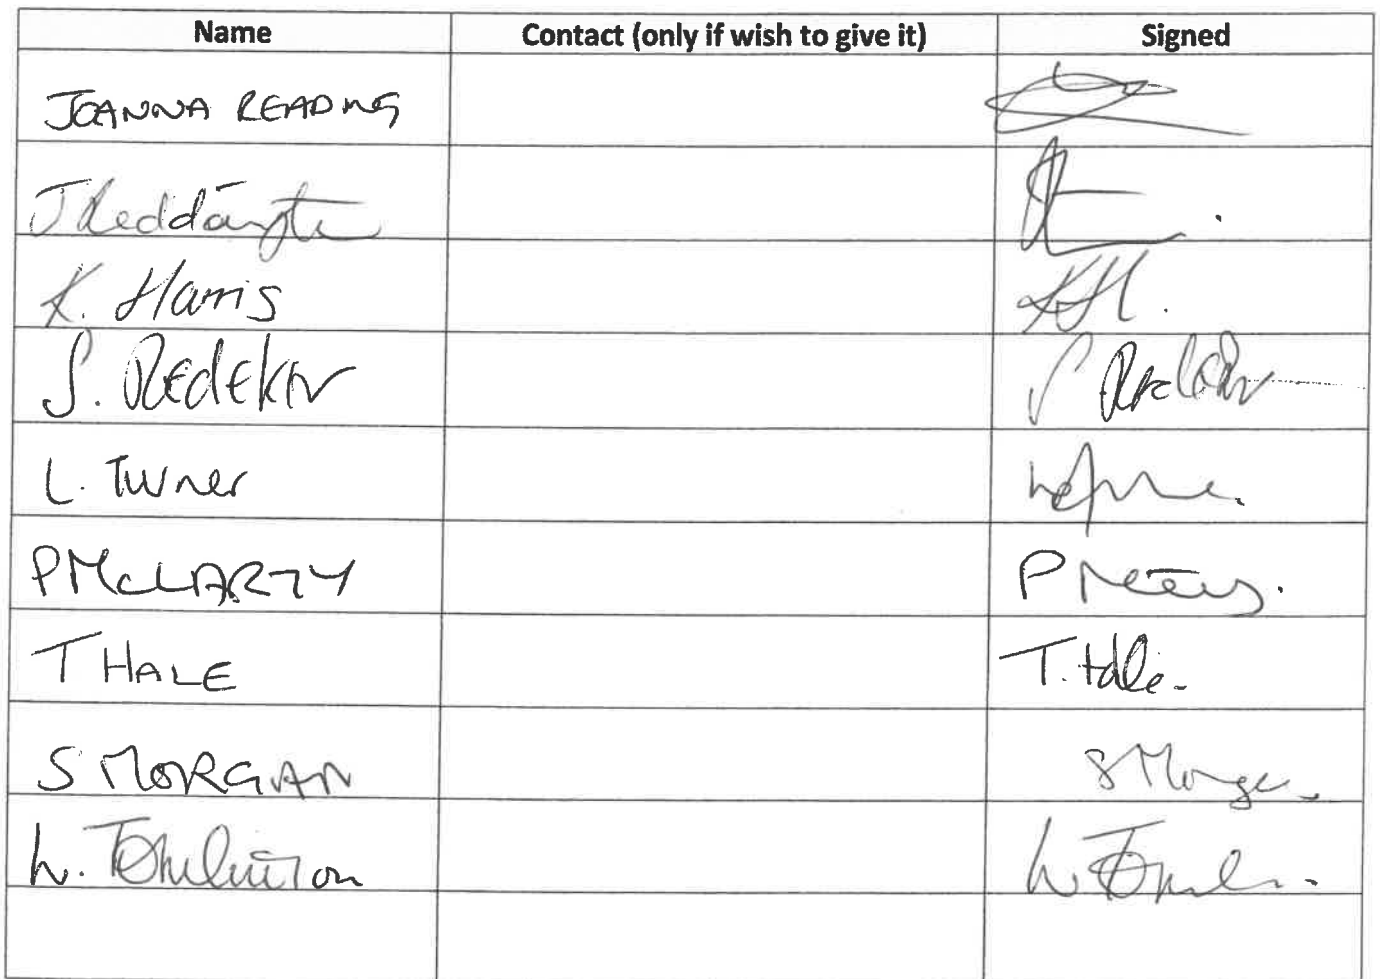 Name Contact (only if wish to give it) Signed
JOANNA READING
J Reddington
K. Harris KH.
S. Redekar
L. Turner
P McCLARTY P
T HALE T. Hale.
S MORGAN S Morga
L. Tomlinson L